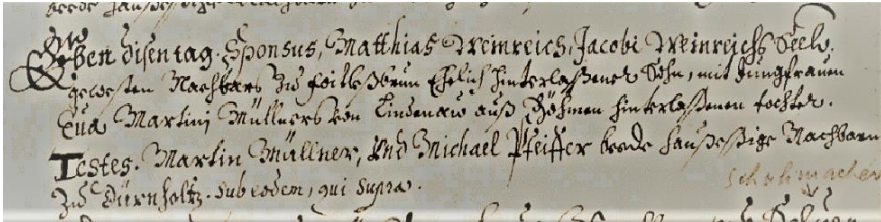 beede haußeßige
Eben disen tag. Sponsus, Matthias Weinreich, Jacobi Weinreichs Seel.
gewesten Nachbars zu Ehelich hinterlaßener Sohn, mit Jungfrauen
Eua Martini Müllners von Lindenaw auß Böhmen hinterlaßenen tochter.
Testes. Martin Müllner, vnd Michael Pfeiffer beede haußeßige Nachbarn
Zu Dürnholtz. sub eodem, qui supra. Schuhmacher